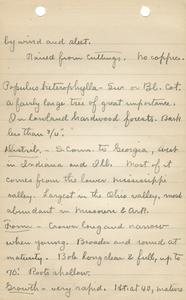 by wind and sleet.
Raised from cuttings. No coppice.
Populus heterophylla - Sw. or Bl. Cot.
a fairly large tree of great importance.
In lowland hardwood forests. Bark
less than 3/4".
Distrib. - S. Conn. to Georgia, west
in Indiana and Ills. Most of it
comes from the lower Mississippi
valley. Largest in the Ohio valley, most
abundant in Missouri & Ark.
Form - Crown long and narrow
when young. Broader and round at
maturity. Bole long, clear & full, up to
70'. Roots shallow.
Growth - very rapid. 1st at 40, mature